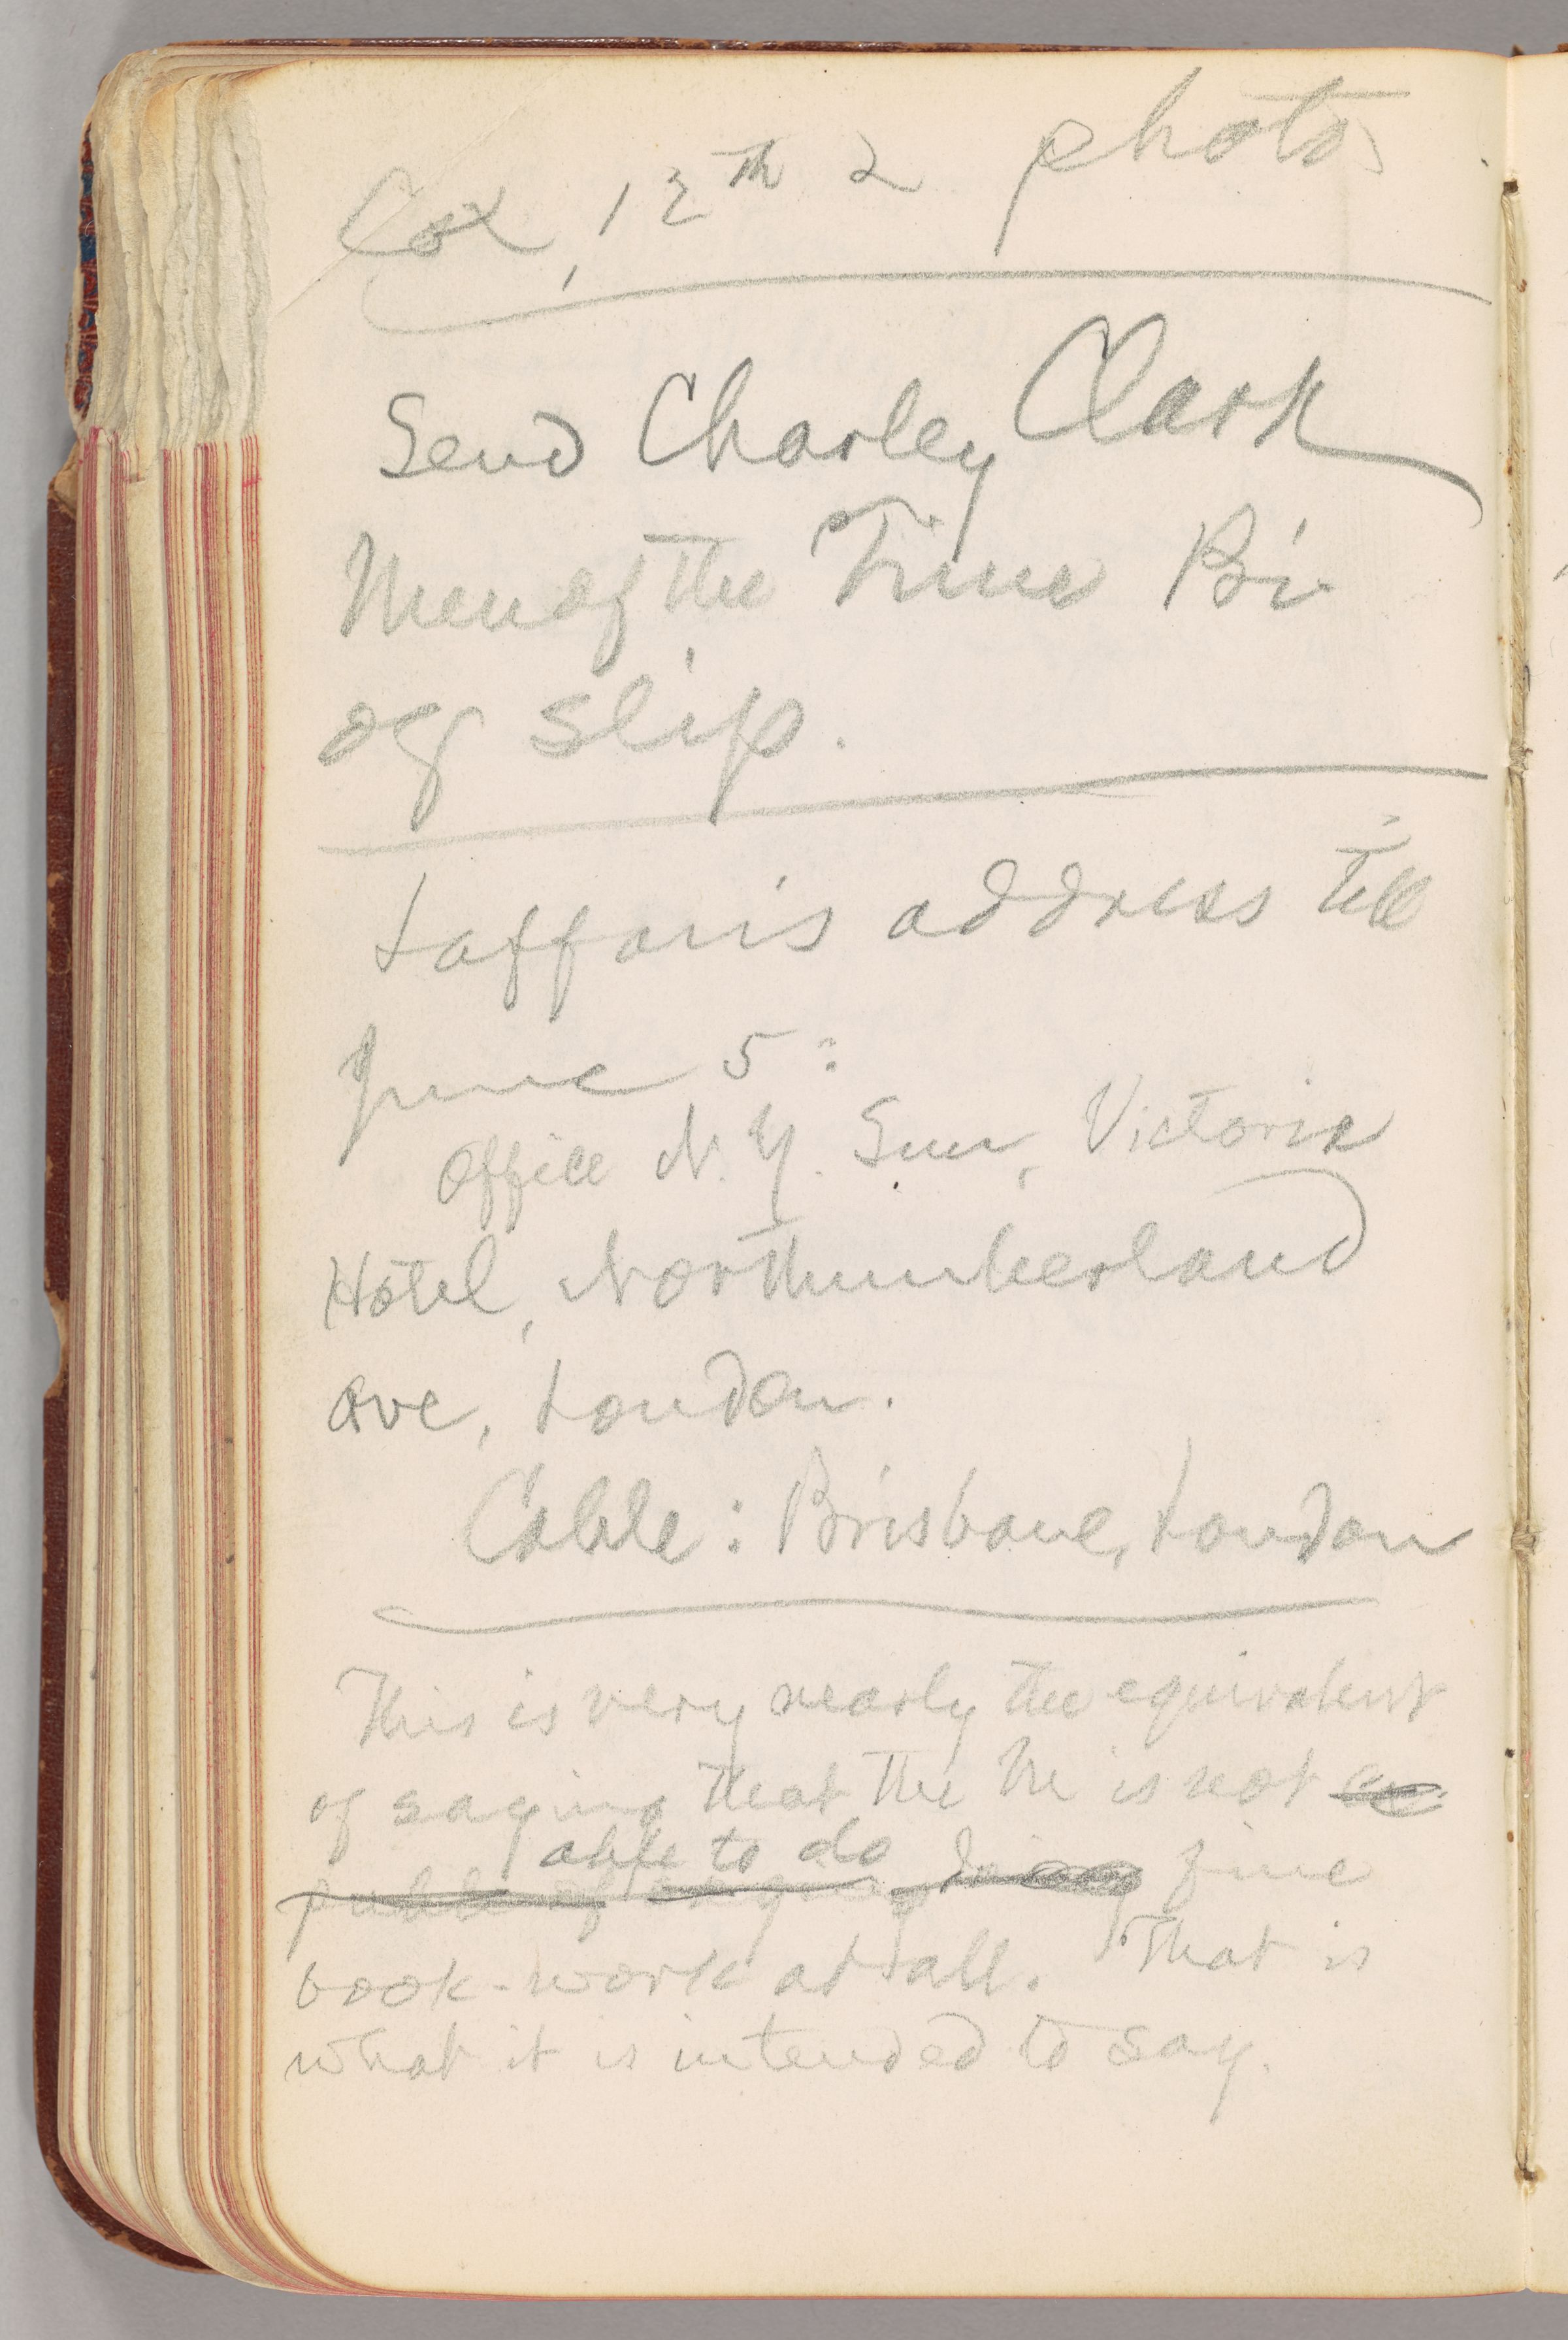 Cox, 12th 2 photos
Send Charley Clark
Men of the Time Bi
og slip.
Laffan's address till
June 5:
Office N.Y. Sun, Victoria
Hotel, Northumberland
Ave, London.
Cable: Brisbane, London
This is very nearly the equivalent
of saying that the M is not
able to do
pable of doing fine
book-work at all. That is
what it is intended to say.